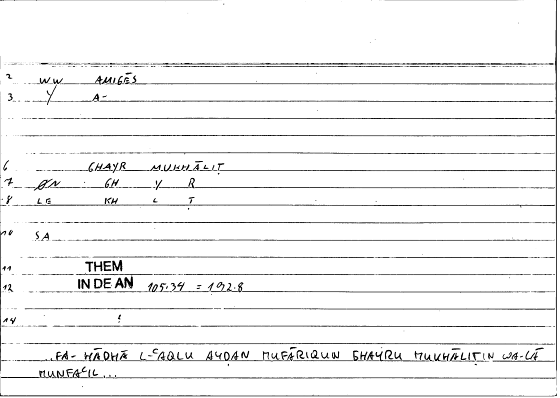 2 WW AMIGĒS
3 Y A-
6 GHAYR MUKHĀLIṬ
7 ØN GH Y R
8 LE KH L Ṭ
10 SA
11 THEM
12 IN DE AN 105.34 = 192.8
14 !
..FA- HĀDHĀ L-ʿAQLU AYḌAN MUFĀRIQUN GHAYRU MUKHĀLIṬIN WA-LĀ
MUNFAʿIL...